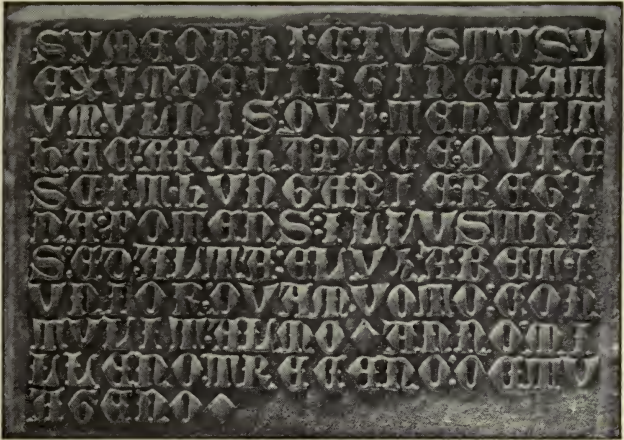 SYMEON:hI.C.IUSTUS:Y
EXUM.DE.VIRGINE.NAT
UM.ULNIS:QVI.TENUIT
hAC:ARChA:PACE:QVIE
SCIT.hUNGARI.E REGI
NA:POTENS:ILLUSTRI
S:ET ALTA:ELYZABET.I
UNIOR:QVAM.VOTO.CON
TULIT:ALMO ANNO:MI
LLENO:TRECENO:OCTU
AGENO